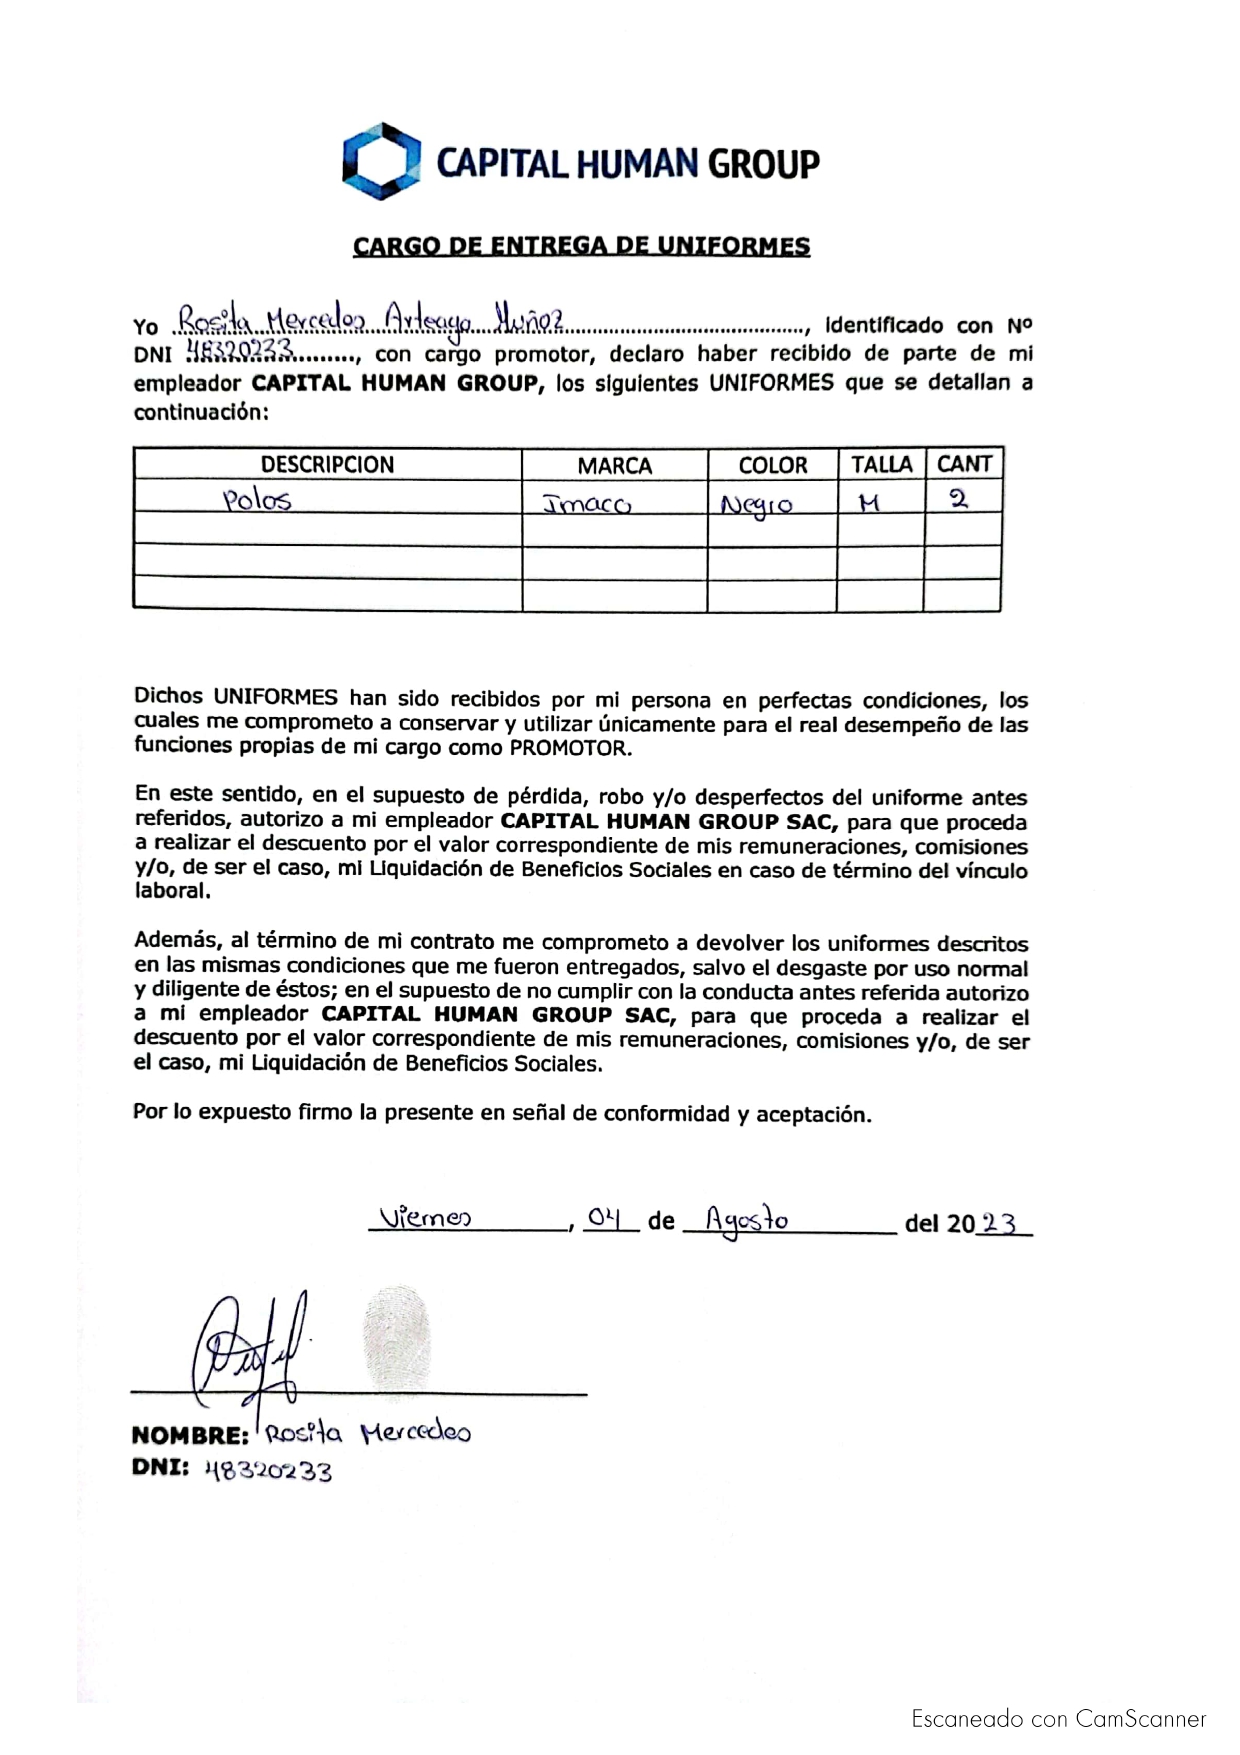 CAPITAL HUMAN GROUP
CARGO DE ENTREGA DE UNIFORMES
Yo Rosita Mercedes Arteaga Muñoz, Identificado con Nº
DNI 48320233, con cargo promotor, declaro haber recibido de parte de mi
empleador CAPITAL HUMAN GROUP, los siguientes UNIFORMES que se detallan a
continuación:
DESCRIPCION MARCA COLOR TALLA CANT
Polos Imaco Negro M 2
Dichos UNIFORMES han sido recibidos por mi persona en perfectas condiciones, los
cuales me comprometo a conservar y utilizar únicamente para el real desempeño de las
funciones propias de mi cargo como PROMOTOR.
En este sentido, en el supuesto de pérdida, robo y/o desperfectos del uniforme antes
referidos, autorizo a mi empleador CAPITAL HUMAN GROUP SAC, para que proceda
a realizar el descuento por el valor correspondiente de mis remuneraciones, comisiones
y/o, de ser el caso, mi Liquidación de Beneficios Sociales en caso de término del vínculo
laboral.
Además, al término de mi contrato me comprometo a devolver los uniformes descritos
en las mismas condiciones que me fueron entregados, salvo el desgaste por uso normal
y diligente de éstos; en el supuesto de no cumplir con la conducta antes referida autorizo
a mi empleador CAPITAL HUMAN GROUP SAC, para que proceda a realizar el
descuento por el valor correspondiente de mis remuneraciones, comisiones y/o, de ser
el caso, mi Liquidación de Beneficios Sociales.
Por lo expuesto firmo la presente en señal de conformidad y aceptación.
Viernes, 04 de Agosto del 2023
NOMBRE: Rosita Mercedes
DNI: 48320233
Escaneado con CamScanner